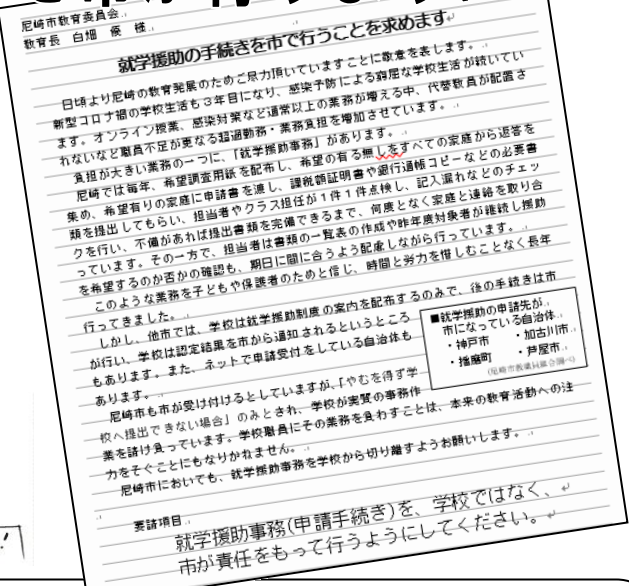 尼崎市教育委員会
教育長 白畑 優 様
就学援助の手続きを市で行うことを求めます
日頃より尼崎の教育発展のためご尽力頂いていますことに敬意を表します。
新型コロナ禍の学校生活も3年目になり、感染予防による窮屈な学校生活が続いてい
ます。オンライン授業、感染対策など通常以上の業務が増える中、代替教員が配置さ
れないなど職員不足が更なる超過勤務・業務負担を増加させています。
負担が大きい業務の一つに、「就学援助事務」があります。
尼崎では毎年、希望調査用紙を配布し、希望の有る無しをすべての家庭から返答を
集め、希望有りの家庭に申請書を渡し、課税額証明書や銀行通帳コピーなどの必要書
類を提出してもらい、担当者やクラス担任が1件1件点検し、記入漏れなどのチェッ
クを行い、不備があれば提出書類を完備できるまで、何度となく家庭と連絡を取り合
っています。その一方で、担当者は書類の一覧表の作成や昨年度対象者が継続し援助
を希望するのか否かの確認も、期日に間に合うよう配慮しながら行っています。
このような業務を子どもや保護者のためと信じ、時間と労力を惜しむことなく長年
行ってきました。
しかし、他市では、学校は就学援助制度の案内を配布するのみで、後の手続きは市
が行い、学校は認定結果を市から通知されるというところ
もあります。また、ネットで申請受付をしている自治体も
あります。
■就学援助の申請先が
市になっている自治体
・神戸市 ・加古川市
・播磨町 ・芦屋市
尼崎市も市が受け付けるとしていますが、「やむを得ず学
校へ提出できない場合」のみとされ、学校が実質の事務作
業を請け負っています。学校職員にその業務を負わすことは、本来の教育活動への注
力をそぐことにもなりかねません。
尼崎市においても、就学援助事務を学校から切り離すようお願いします。
要請項目
就学援助事務(申請手続き)を、学校ではなく、
市が責任をもって行うようにしてください。